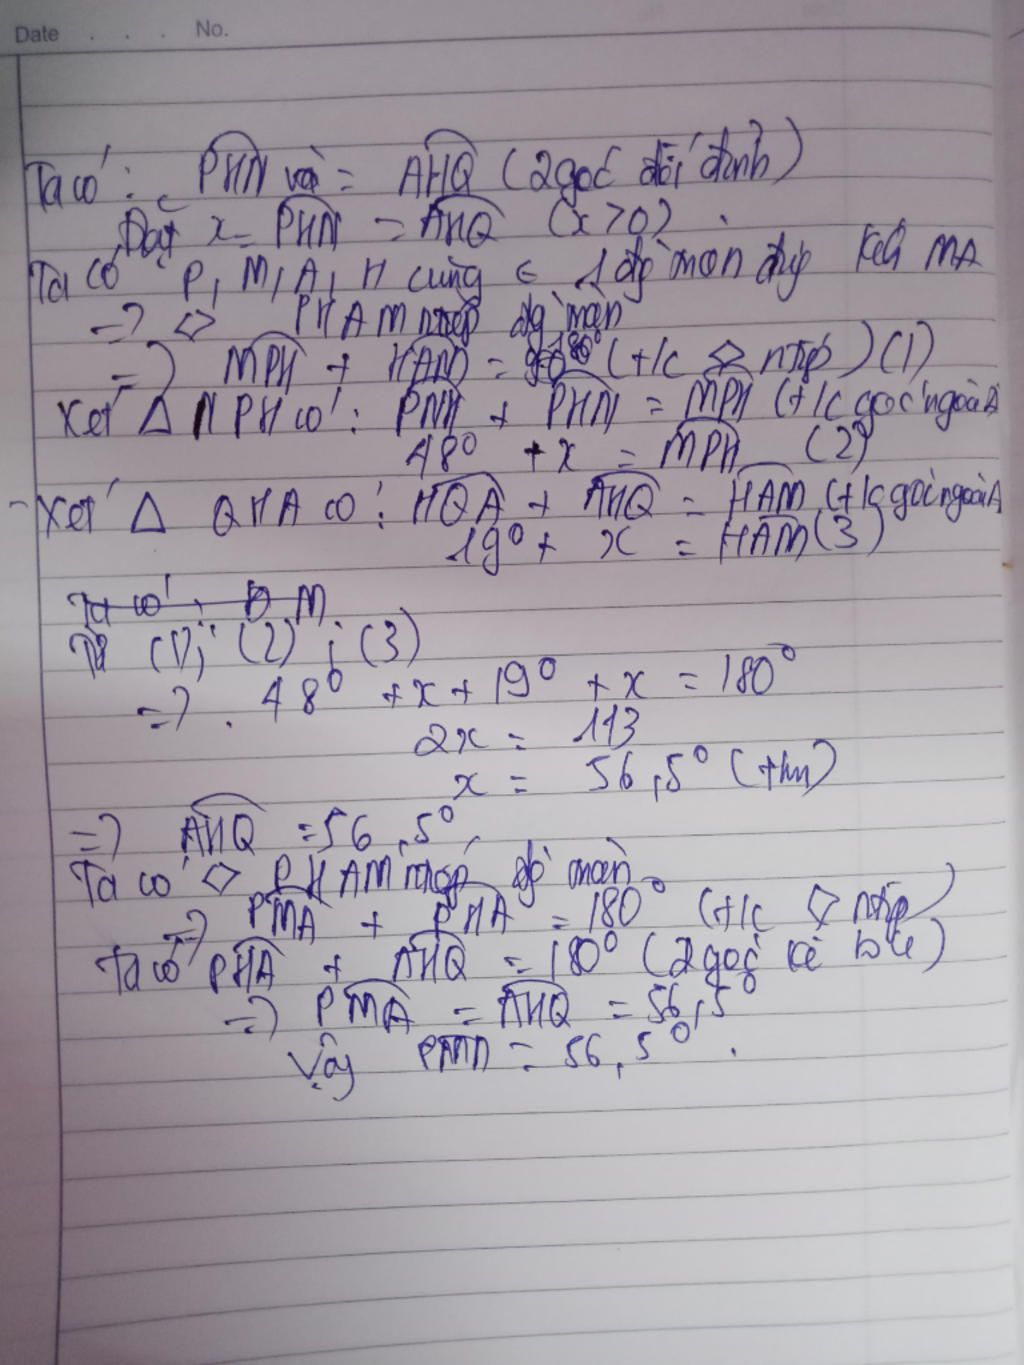 Date . . . No.
Ta có: PHN và = AHQ (2 góc đối đỉnh)
Đặt x = PHN = AHQ (x > 0)
Ta có P, M, A, H cùng ∈ 1 đg tròn MA
=> ◇ PHAM ntiếp đg tròn
=> MPH + HAM = 180° (t/c ◇ ntiếp) (1)
Xét △ NPH có: PNH + PHN = MPH (t/c góc ngoài △
48° + x = MPH (2)
- Xét △ QHA có: HQA + AHQ = HAM (t/c góc ngoài △
19° + x = HAM (3)
Ta có: M
Từ (1); (2); (3)
=> 48° + x + 19° + x = 180°
2x = 113
x = 56,5° (thm)
=> AHQ = 56,5°
Ta có ◇ PHAM ntiếp đg tròn
=> PMA + PHA = 180° (t/c ◇ ntiếp)
Ta có PHA + AHQ = 180° (2 góc kề bù)
=> PMA = AHQ = 56,5°
Vậy = 56,5°.